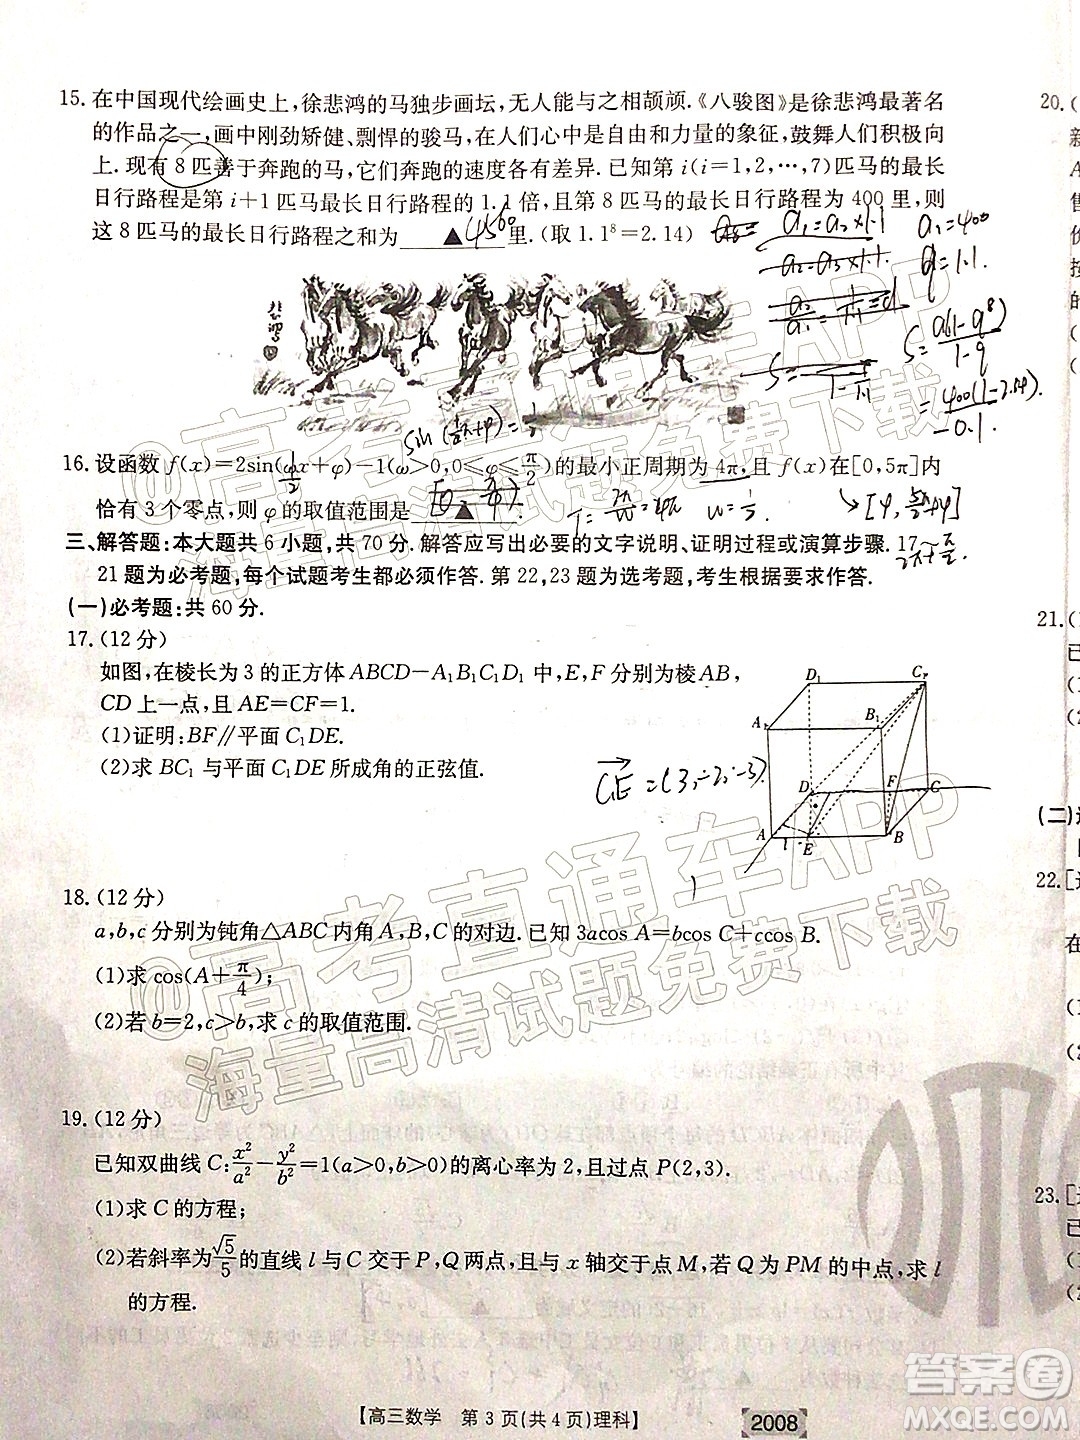 15. 在中国现代绘画史上,徐悲鸿的马独步画坛,无人能与之相颉颃.《八骏图》是徐悲鸿最著名
的作品之一,画中刚劲矫健、剽悍的骏马,在人们心中是自由和力量的象征,鼓舞人们积极向
上.现有 8 匹善于奔跑的马,它们奔跑的速度各有差异.已知第 i(i=1,2,…,7)匹马的最长
日行路程是第 i+1 匹马最长日行路程的 1.1 倍,且第 8 匹马的最长日行路程为 400 里,则
这 8 匹马的最长日行路程之和为 ▲ 4560 里.(取 1.1⁸=2.14)
a₁=a₂×1.1
a₁=400
a₂=a₃×1.1
q=1.1.
S=a(1-q⁸)/1-q
=400(1-2.14)/-0.1.
sin(½x+φ)=½
16. 设函数 f(x)=2sin(ωx+φ)-1(ω>0,0≤φ≤π/2)的最小正周期为 4π,且 f(x)在[0,5π]内
恰有 3 个零点,则 φ 的取值范围是 ▲ .
T=2π/w=4π w=½
→[φ, 5π/2+φ]
三、解答题:本大题共 6 小题,共 70 分.解答应写出必要的文字说明、证明过程或演算步骤.17~
21 题为必考题,每个试题考生都必须作答.第 22,23 题为选考题,考生根据要求作答.
(一)必考题:共 60 分.
17.(12 分)
如图,在棱长为 3 的正方体 ABCD-A₁B₁C₁D₁ 中,E,F 分别为棱 AB,
CD 上一点,且 AE=CF=1.
(1)证明:BF∥平面 C₁DE.
(2)求 BC₁ 与平面 C₁DE 所成角的正弦值.
C₁E=(3,-2,-3).
D₁ C₁
A₁ B₁
D F C
A E B
18.(12 分)
a,b,c 分别为钝角△ABC 内角 A,B,C 的对边.已知 3acos A=bcos C+ccos B.
(1)求 cos(A+π/4);
(2)若 b=2,c>b,求 c 的取值范围.
19.(12 分)
已知双曲线 C:x²/a²-y²/b²=1(a>0,b>0)的离心率为 2,且过点 P(2,3).
(1)求 C 的方程;
(2)若斜率为√5/5的直线 l 与 C 交于 P,Q 两点,且与 x 轴交于点 M,若 Q 为 PM 的中点,求 l
的方程.
【高三数学 第 3 页(共 4 页)理科】
2008
20.(
新
A
售
价
按
的
(
(
21.(1
已
(1
(2
(二)选
22.[选
在
(1
(2
23.[选
已
(1
(2
@高考直通车APP
海量高清试题免费下载
@高考直通车APP
海量高清试题免费下载
答案圈
MXQE.COM